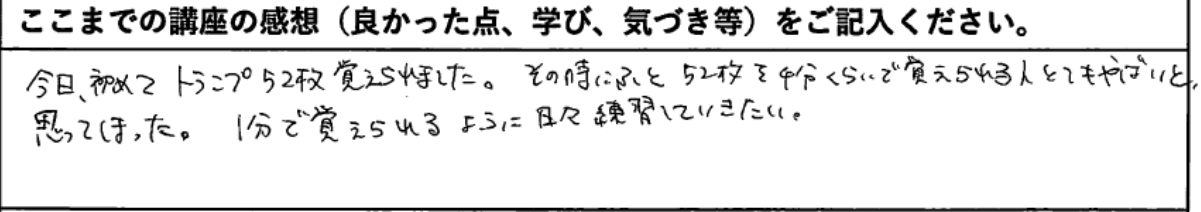 ここまでの講座の感想（良かった点、学び、気づき等）をご記入ください。
今日、初めてトランプ52枚覚えられました。その時にふと52枚を4分くらいで覚えられる人とてもやばいと、
思ってしまった。1分で覚えられるように日々練習していきたい。